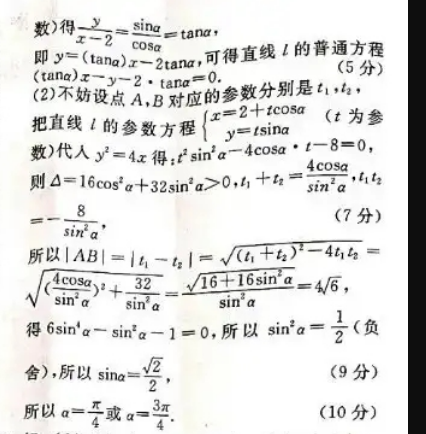 数)得 y/(x-2) = sinα/cosα = tanα,
即 y=(tanα)x-2tanα,可得直线 l 的普通方程
(tanα)x-y-2·tanα=0. (5分)
(2)不妨设点 A,B 对应的参数分别是 t₁,t₂,
把直线 l 的参数方程 { x=2+tcosα y=tsinα (t 为参
数)代人 y²=4x 得:t²sin²α-4cosα·t-8=0,
则 Δ=16cos²α+32sin²α>0,t₁+t₂=4cosα/sin²α,t₁t₂
=-8/sin²α, (7分)
所以|AB|=|t₁-t₂|=√((t₁+t₂)²-4t₁t₂)=
√((4cosα/sin²α)²+32/sin²α)=√(16+16sin²α)/sin²α=4√6,
得 6sin⁴α-sin²α-1=0,所以 sin²α=1/2(负
舍),所以 sinα=√2/2, (9分)
所以 α=π/4或 α=3π/4. (10分)